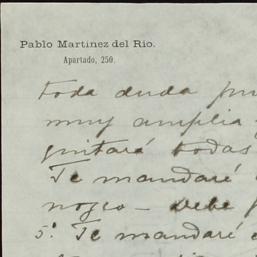 Pablo Martinez del Rio.
Apartado, 250.
toda duda
muy amplia
quitaré todas
Te mandaré
debe
5º Te mandaré